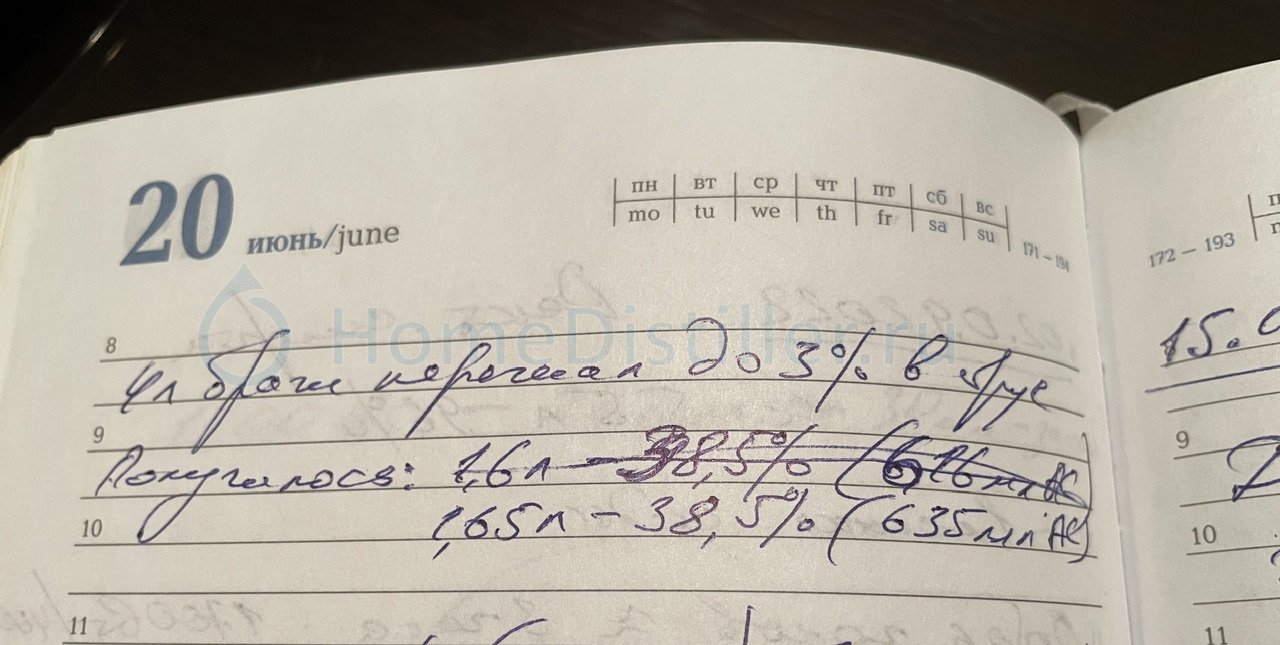 20 июнь/june
пн вт ср чт пт сб вс
mo tu we th fr sa su
171 – 194
HomeDistiller.ru
8
4л браги перегнал до 3% в струе
9
Получилось: 1,6л – 38,5% (616мл АС)
10
1,65л – 38,5% (635мл АС)
11
172 – 193
15.0
9
10
11